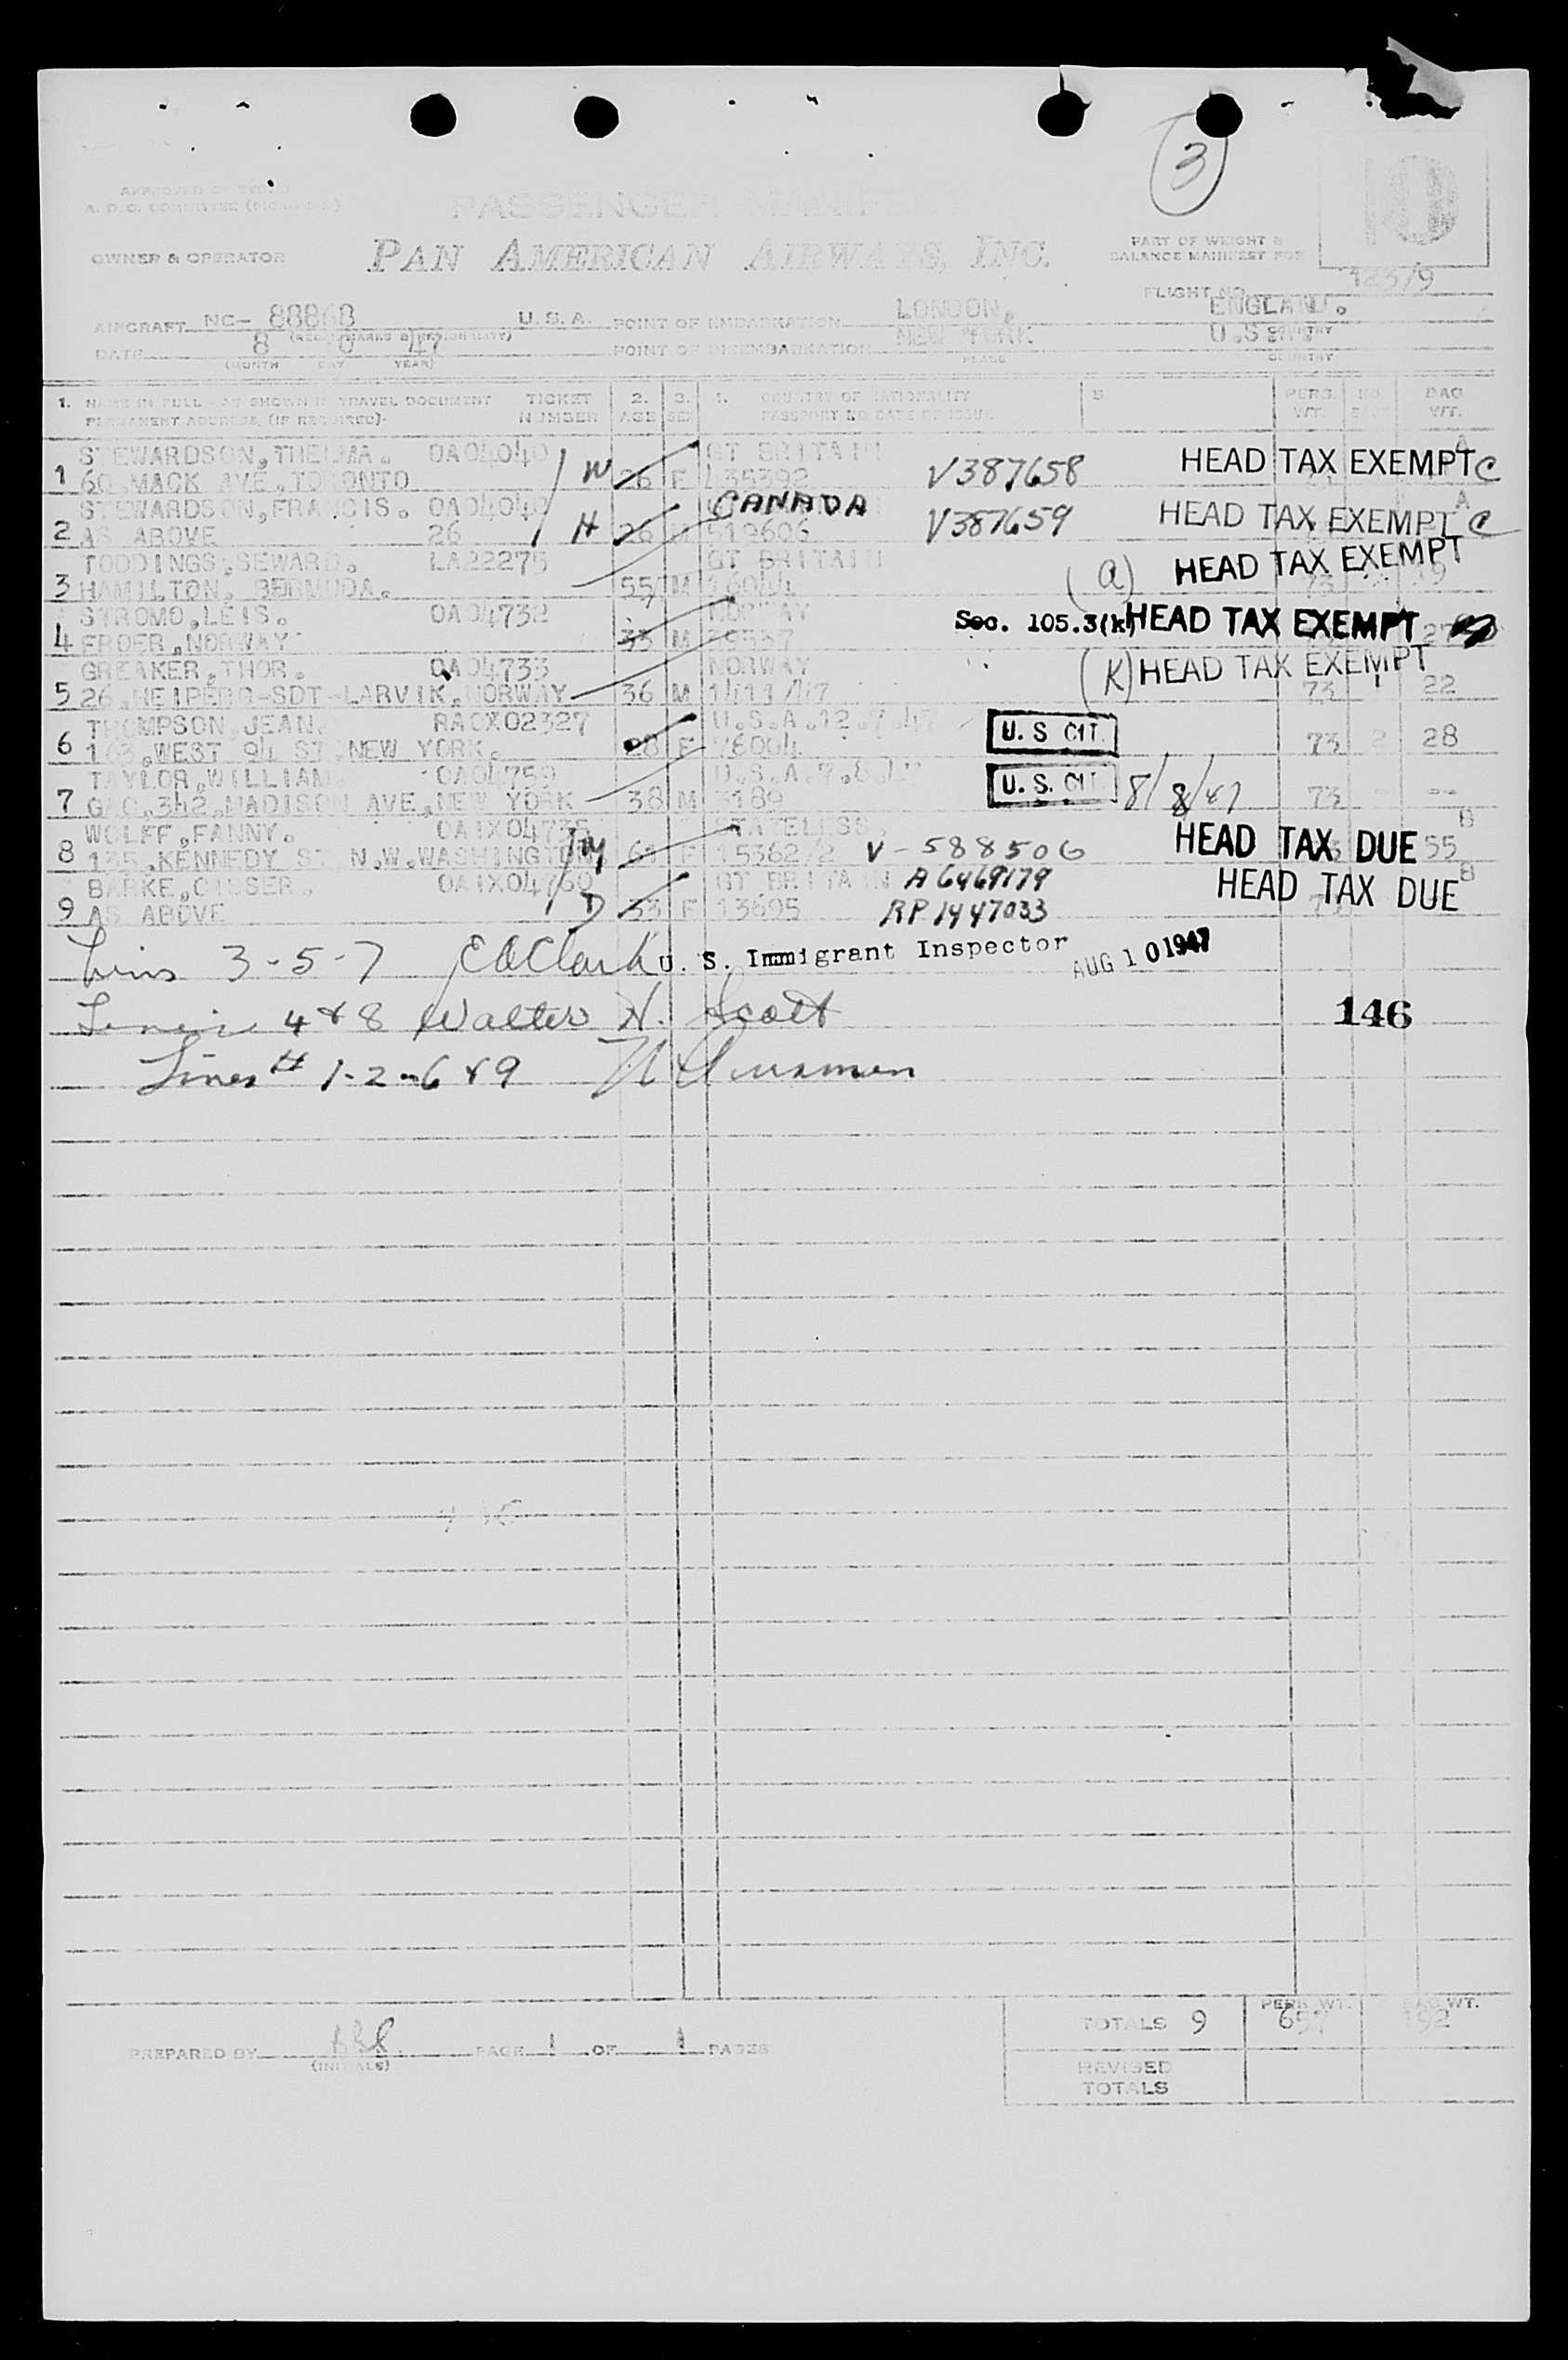 3
A. O. C. COMMITTEE
PASSENGER MANIFEST
OWNER & OPERATOR PAN AMERICAN AIRWAYS, INC. PART OF WEIGHT &
BALANCE MANIFEST FOR
FLIGHT NO.
AIRCRAFT NC- 88868 U.S.A. POINT OF EMBARKATION LONDON, ENGLAND.
DATE 8 47 POINT OF DISEMBARKATION NEW YORK U.S.A.
(MONTH DAY YEAR) PLACE COUNTRY
1. NAME IN FULL - AS SHOWN IN TRAVEL DOCUMENT TICKET 2. 3. 4. COUNTRY OF NATIONALITY 5. PERS. NO. BAG
PERMANENT ADDRESS, (IF REQUIRED). NUMBER AGE SEX PASSPORT NO DATE OF ISSUE WT. WT.
STEWARDSON, THELMA. OA04040 GT BRITAIN A
1 60, MACK AVE, TORONTO W 26 F 435392 V387658 HEAD TAX EXEMPT C
STEWARDSON, FRANCIS. OA04040 CANADA A
2 AS ABOVE 26 H 26 M 519606 V387659 HEAD TAX EXEMPT C
TODDINGS, SEWARD. LA22275 GT BRITAIN
3 HAMILTON, BERMUDA. 55 M 16044 (a) HEAD TAX EXEMPT
STROMO, LEIS. OA04732 NORWAY
4 FROER, NORWAY 33 M Sec. 105.3(k) HEAD TAX EXEMPT 27
GREAKER, THOR. OA04733 NORWAY
5 26, HEIPERG-SDT-LARVIK, NORWAY 36 M (K) HEAD TAX EXEMPT 73 1 22
THOMPSON, JEAN. RAOX02327 U.S.A. 12.7.47
6 163, WEST 94 ST, NEW YORK. 28 F 76004 U. S. CIT. 73 2 28
TAYLOR, WILLIAM. OA04759 U.S.A.
7 GAO, 342, MADISON AVE, NEW YORK 38 M 3189 U. S. CIT. 8/8/47 73 - --
WOLFF, FANNY. OAIX04735 STATELESS. B
8 135, KENNEDY ST N.W. WASHINGTON M 61 F 15362/2 V-588506 HEAD TAX DUE 55
BARKE, GILSER. OAIX04760 GT BRITAIN A6469179 B
9 AS ABOVE D 33 F 13695 RP 1447033 HEAD TAX DUE
Lines 3-5-7 E A Clark U. S. Immigrant Inspector AUG 10 1947
Lines 4 & 8 Walter N. Scott 146
Lines # 1-2-6 & 9
PERS WT. BAG WT.
TOTALS 9 657 192
PREPARED BY PAGE 1 OF 1 PAGES
(INITIALS)
REVISED
TOTALS